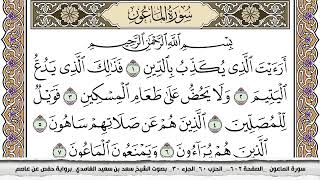 سُورَةُ الْمَاعُونِ
بِسْمِ اللَّهِ الرَّحْمَٰنِ الرَّحِيمِ
أَرَءَيْتَ الَّذِي يُكَذِّبُ بِالدِّينِ ١ فَذَٰلِكَ الَّذِي يَدُعُّ
الْيَتِيمَ ٢ وَلَا يَحُضُّ عَلَىٰ طَعَامِ الْمِسْكِينِ ٣ فَوَيْلٌ
لِّلْمُصَلِّينَ ٤ الَّذِينَ هُمْ عَن صَلَاتِهِمْ سَاهُونَ ٥
الَّذِينَ هُمْ يُرَاءُونَ ٦ وَيَمْنَعُونَ الْمَاعُونَ ٧
سورة الماعون . الصفحة ٦٠٢ . الحزب ٦٠ . الجزء ٣٠ . بصوت الشيخ سعد بن سعيد الغامدي . برواية حفص عن عاصم